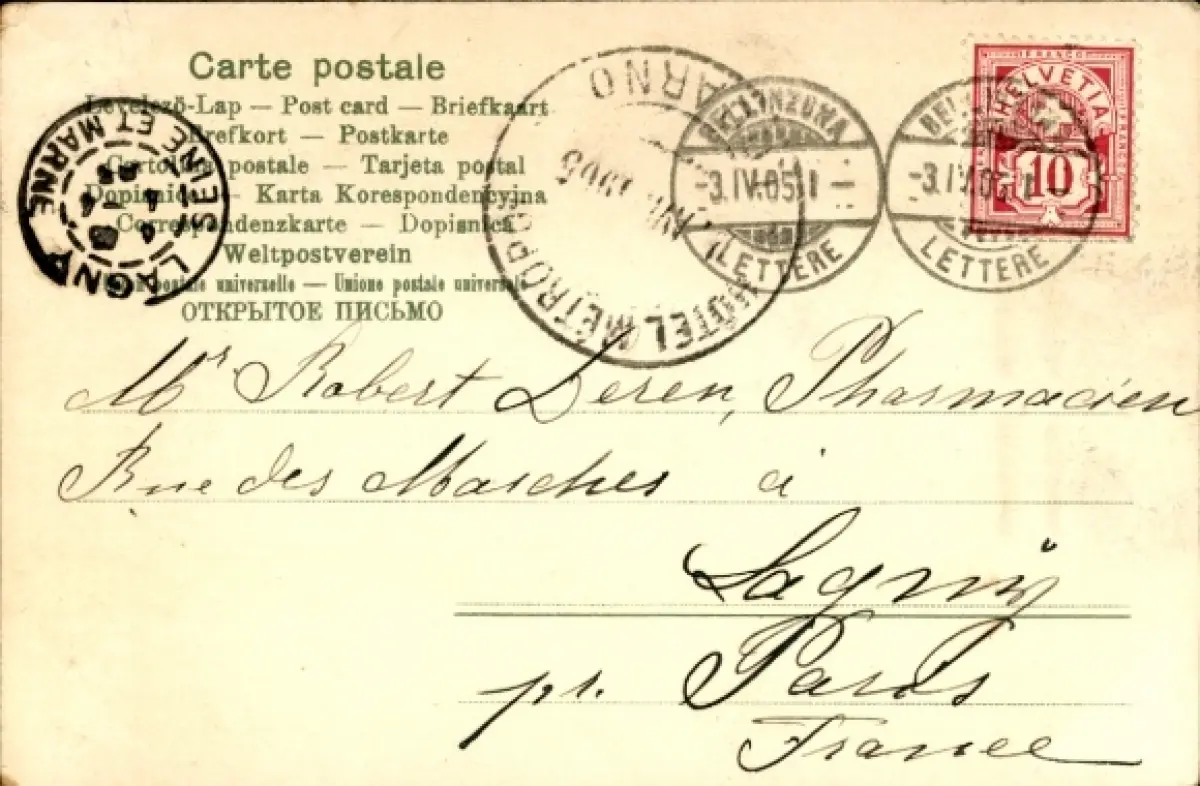 Carte postale
Levelezö-Lap — Post card — Briefkaart
Brefkort — Postkarte
Cartolina postale — Tarjeta postal
Dopisnice — Karta Korespondencyjna
Correspondenzkarte — Dopisnica
Weltpostverein
postale universelle — Unione postale universale
ОТКРЫТОЕ ПИСЬМО
LAGNY
SEINE ET MARNE
HOTEL METROPOLE
1905
BELLINZONA
-3.IV.05.
LETTERE
BEL
-3.IV.05
LETTERE
FRANCO
HELVETIA
10
Mr Robert Deren, Pharmacien
Rue des Marches à
Lagny
pr. Paris
France